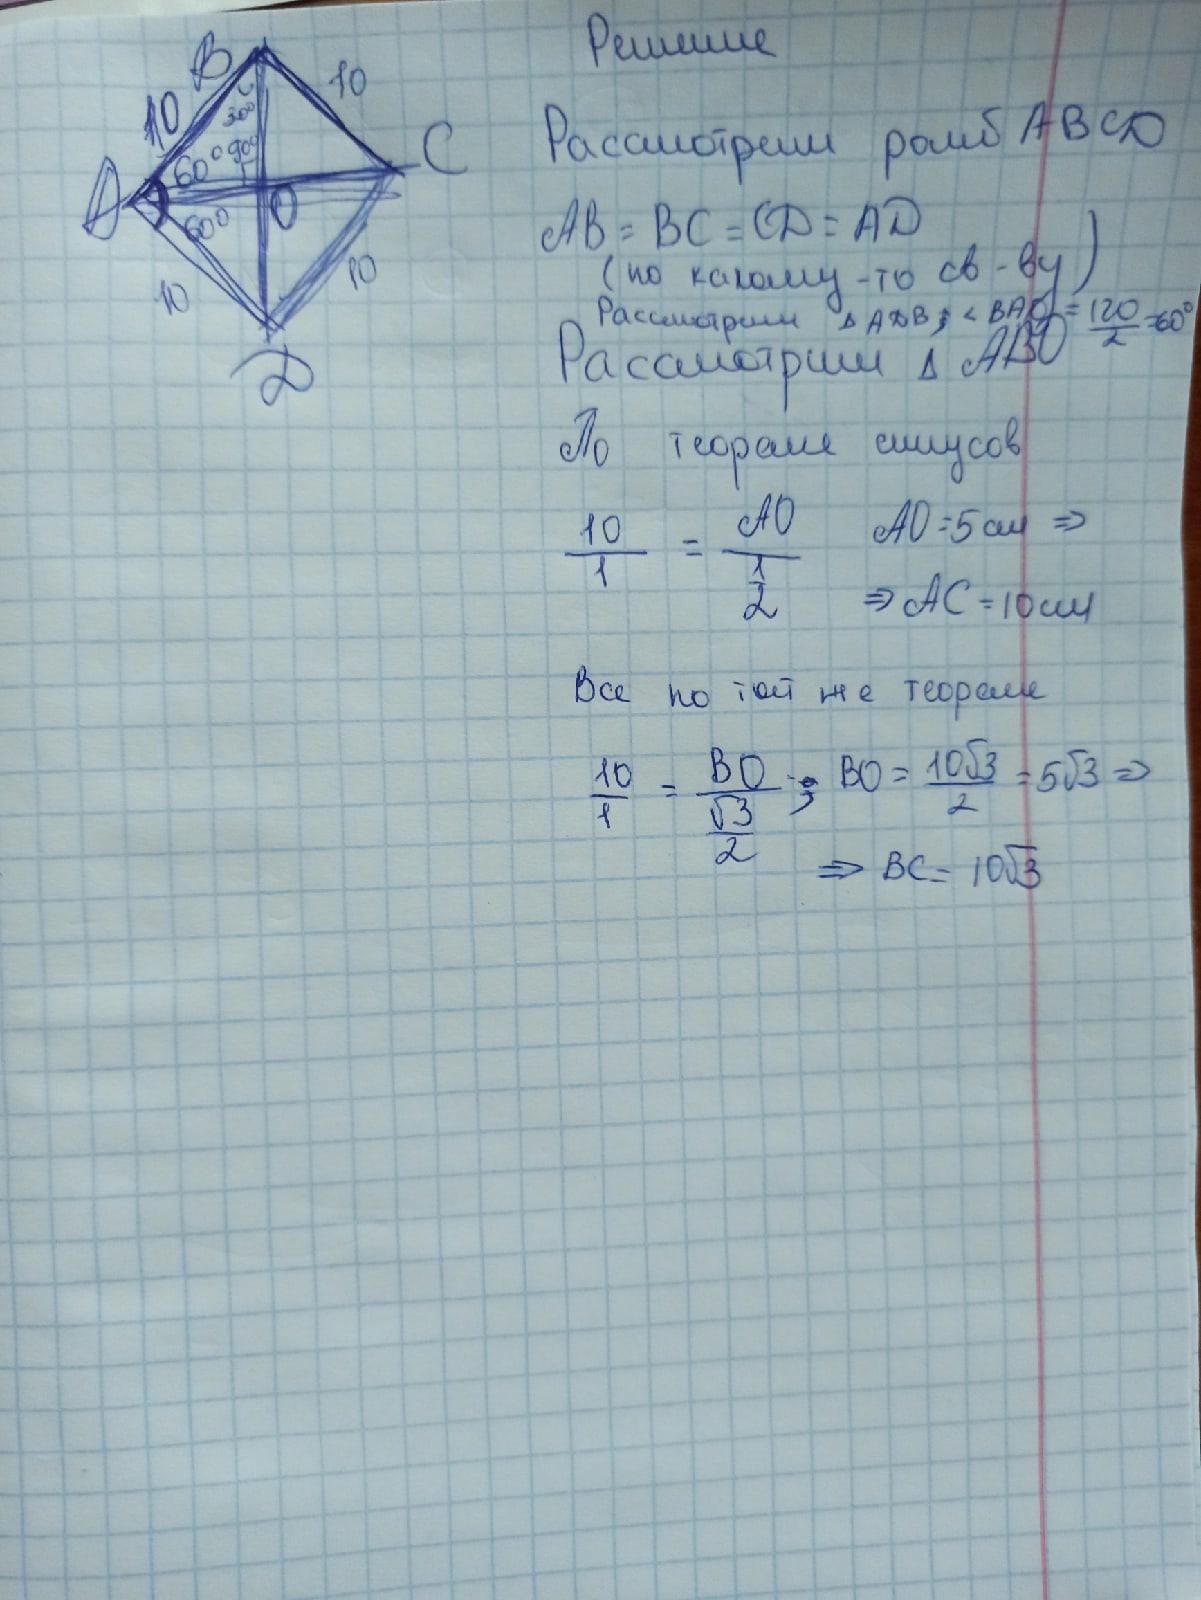 Решение
B
10
10
30°
60°
90°
A
C
60°
O
10
10
D
Рассмотрим ромб ABCD
AB = BC = CD = AD
(по какому-то св-ву)
Рассмотрим △ ADB; < BAO = 120/2 = 60°
Рассмотрим △ ABO
По теореме синусов
10/1 = AO/(1/2) AO = 5 см ⇒
⇒ AC = 10 см
Все по той же теореме
10/1 = BO/(√3/2) ; BO = 10√3/2 = 5√3 ⇒
⇒ BC = 10√3